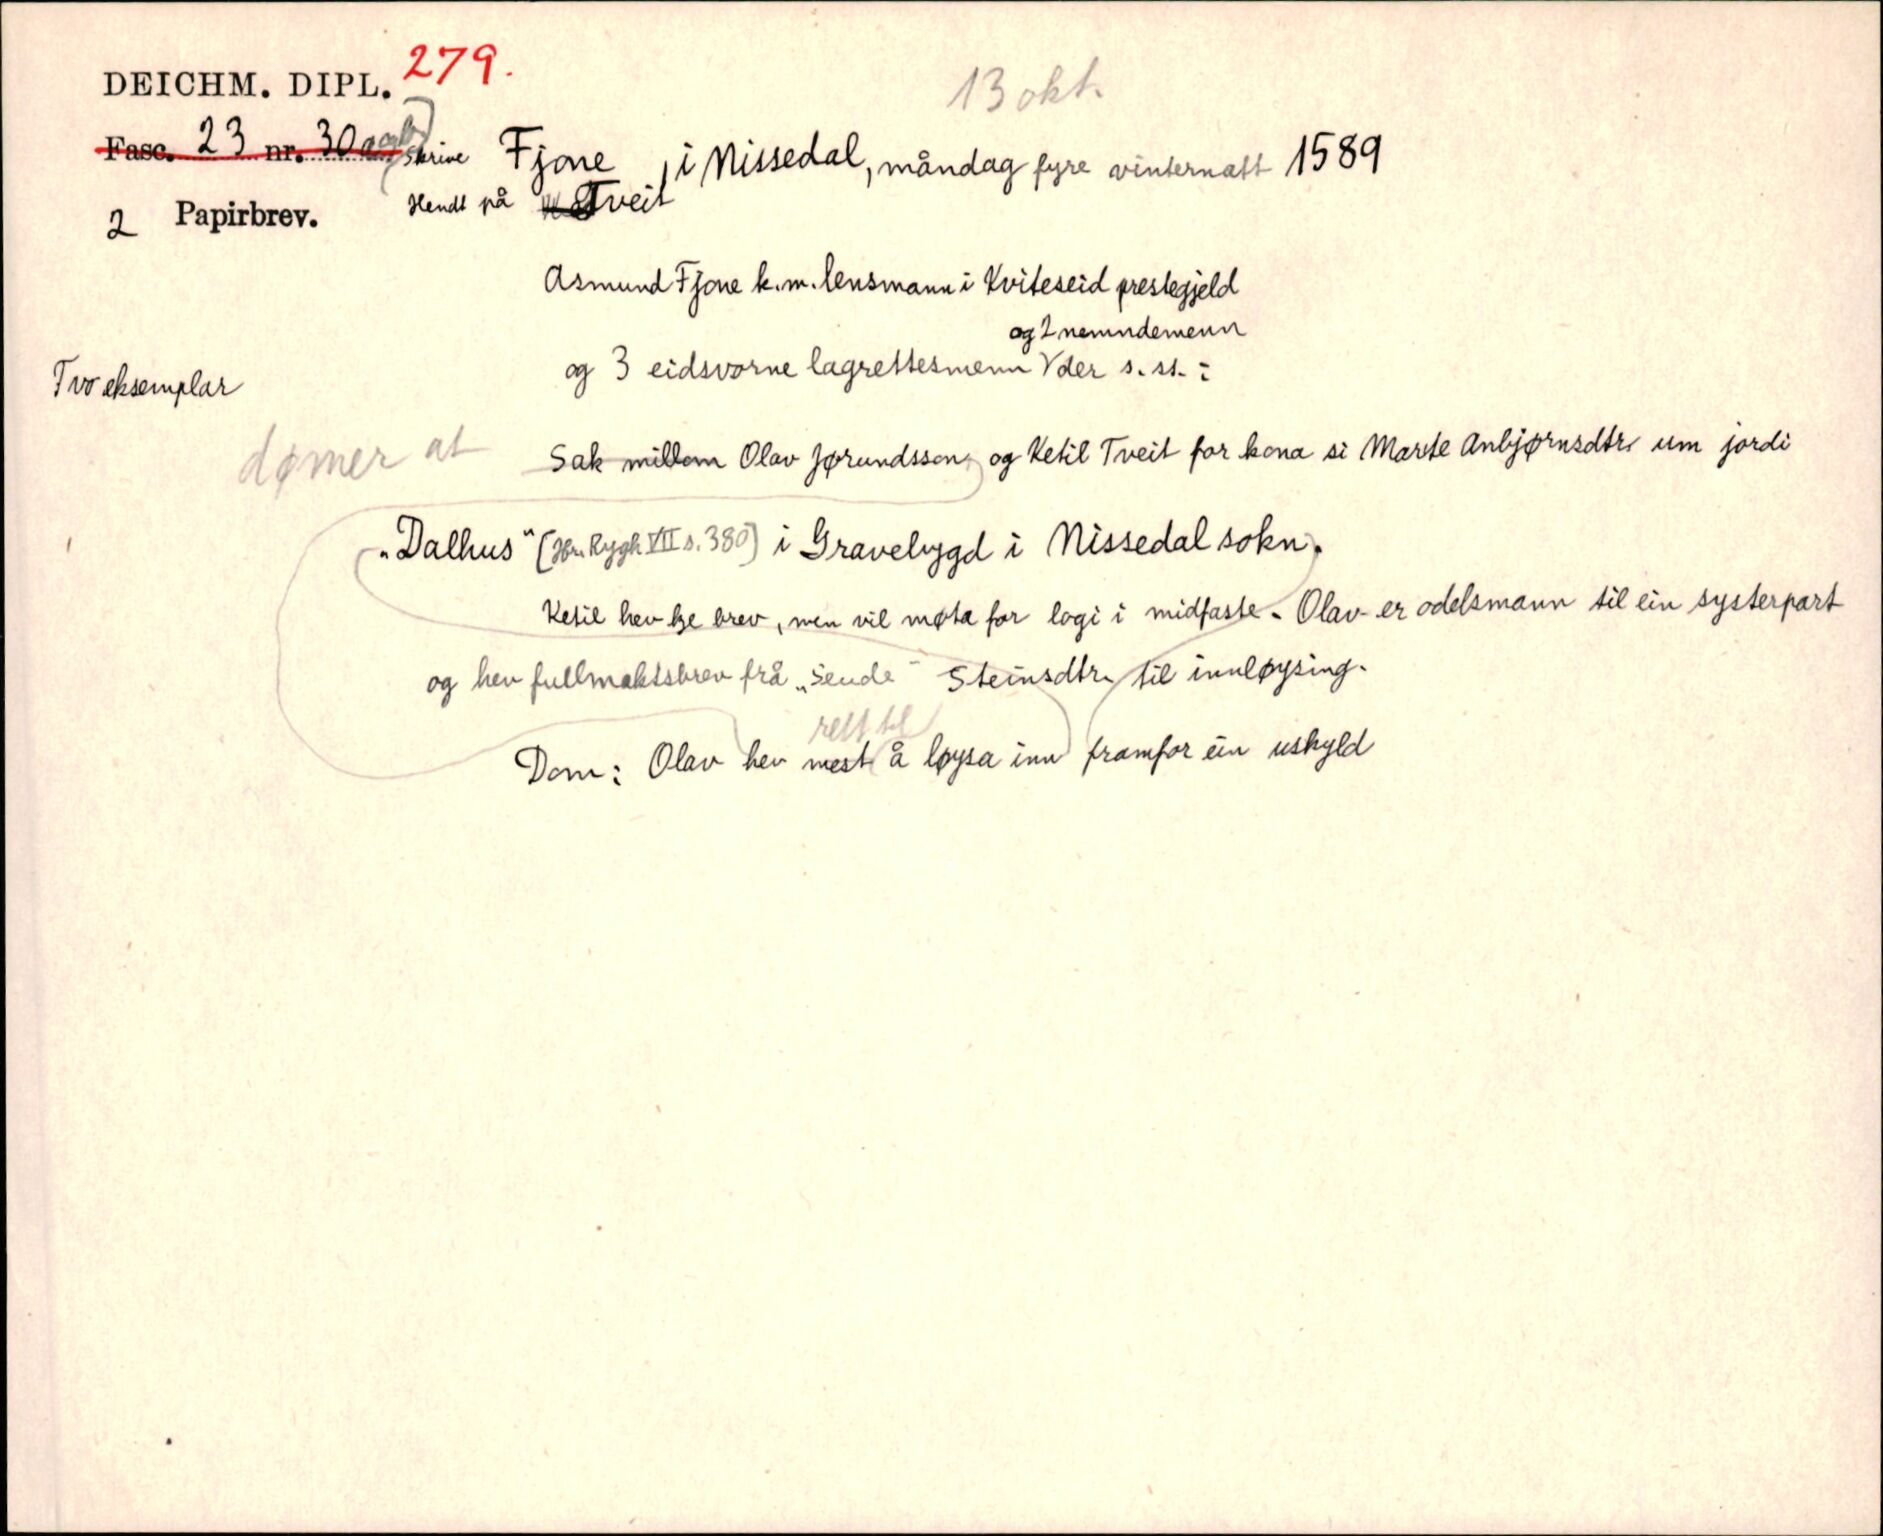 DEICHM. DIPL. 279.
13 okt.
Fasc. 23 nr. 30 a og b) skrive Fjone, i Nissedal, måndag fyre vinternatt 1589
2 Papirbrev. Hendt på Tveit
Asmund Fjone k.m. lensmann i Kviteseid prestegjeld
og 2 nemndemenn
og 3 eidsvorne lagrettesmenn der s. st. :
Tvo eksemplar
dømer at Sak millom Olav Jørundsson og Ketil Tveit for kona si Marte Anbjørnsdtr. um jordi
„Dalhus" (Hr. Rygh VII s. 380) i Gravebygd i Nissedal sokn.
Ketil hev kje brev, men vil møta for logi i midfaste. Olav er odelsmann til ein systerpart
og hev fullmaktsbrev frå „Seude" Steinsdtr. til innløysing.
rett til
Dom: Olav hev mest å løysa inn framfor ein uskyld